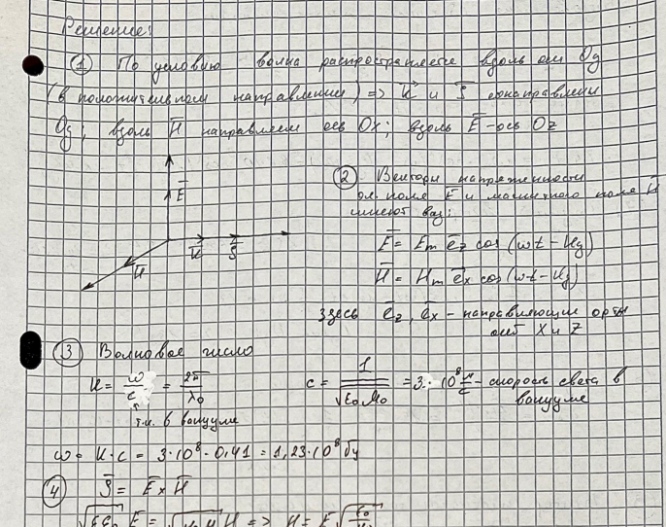 Решение:
① По условию волна распространяется вдоль оси Oy
(в положительном направлении) => k̄ и S̄ сонаправлены
Oy, вдоль H̄ направляем ось Ox; вдоль Ē - ось Oz
Ē
k̄ S̄
H̄
② Векторы напряженности
эл. поля Ē и магнитного поля H̄
имеют вид:
Ē = Em ēz cos (ωt - ky)
H̄ = Hm ēx cos (ωt - ky)
здесь ēz, ēx - направляющие орты
осей X и Z
③ Волновое число
k = ω/c = 2π/λ0
т.к. в вакууме
c = 1/√ε0μ0 = 3·10⁸ м/с - скорость света в
вакууме
ω = k·c = 3·10⁸·0,41 = 1,23·10⁸ Гц
④ S̄ = Ē × H̄
√εε0 E = √μ0μ H => H = E√ε0